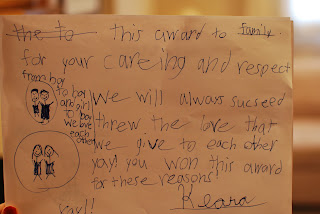 the to this award to family.
for your careing and respect
from boy
to boy
and girl
to boy
we love
each
other
We will always sucseed
threw the love that
we give to each other
yay! you won this award
for these reasons
Keara
Yay!!